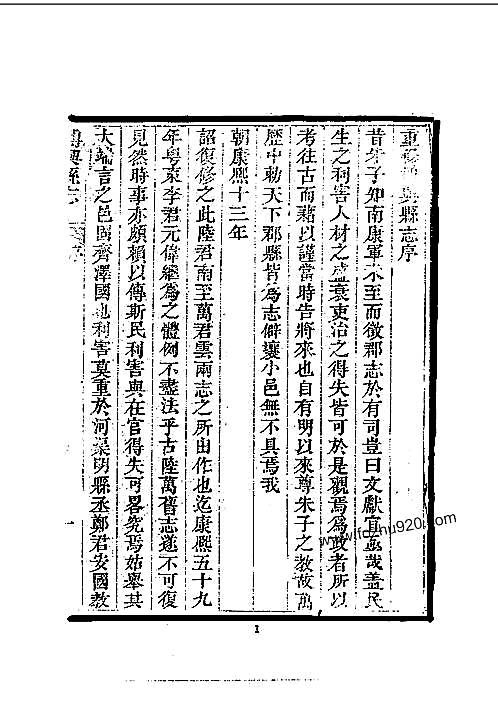 重修博興縣志序
昔朱子知南康軍未至而徵郡志於有司豈曰文獻宜爾哉蓋民
生之利害人材之盛衰吏治之得失皆可於是觀焉為政者所以
考往古而藉以謹當時告將來也自有明以來尊朱子之教故萬
歷中勅天下郡縣皆為志僻壤小邑無不具焉我
朝康熙十三年
詔復修之此陸君南至萬君雲兩志之所由作也迄康熙五十九
年粵東李君元偉繼為之體例不盡法乎古陸萬舊志遂不可復
見然時事亦頗賴以傳斯民利害與在官得失可畧究焉姑舉其
大端言之邑固齊澤國也利害莫重於河渠明縣丞鄭君安國教
博興縣志 序 一
1
www.fdzhu920.com